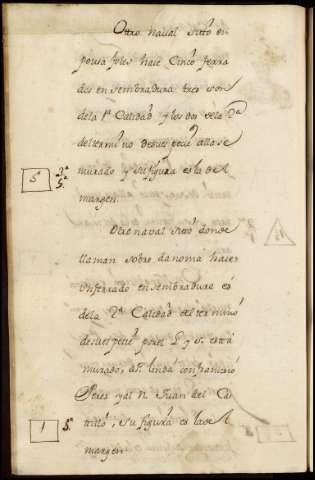 Ottro naval sitto en
pousa foles haze Cinco ferra
dos en sembradura tres son
dela 1ª Calidad y los dos dela 2ª
deltermino
murado y su figura es la de el
margen.
5º
5.
Otro naval sitto donde
llaman sobre danoma haze
un ferrado en sembradura es
dela 2ª Calidad el termino
por el L y S. está
murado, al P. linda con francisco
Peres y al N. Juan del Cas
trillo, Su figura es la de el
margen
1
5º